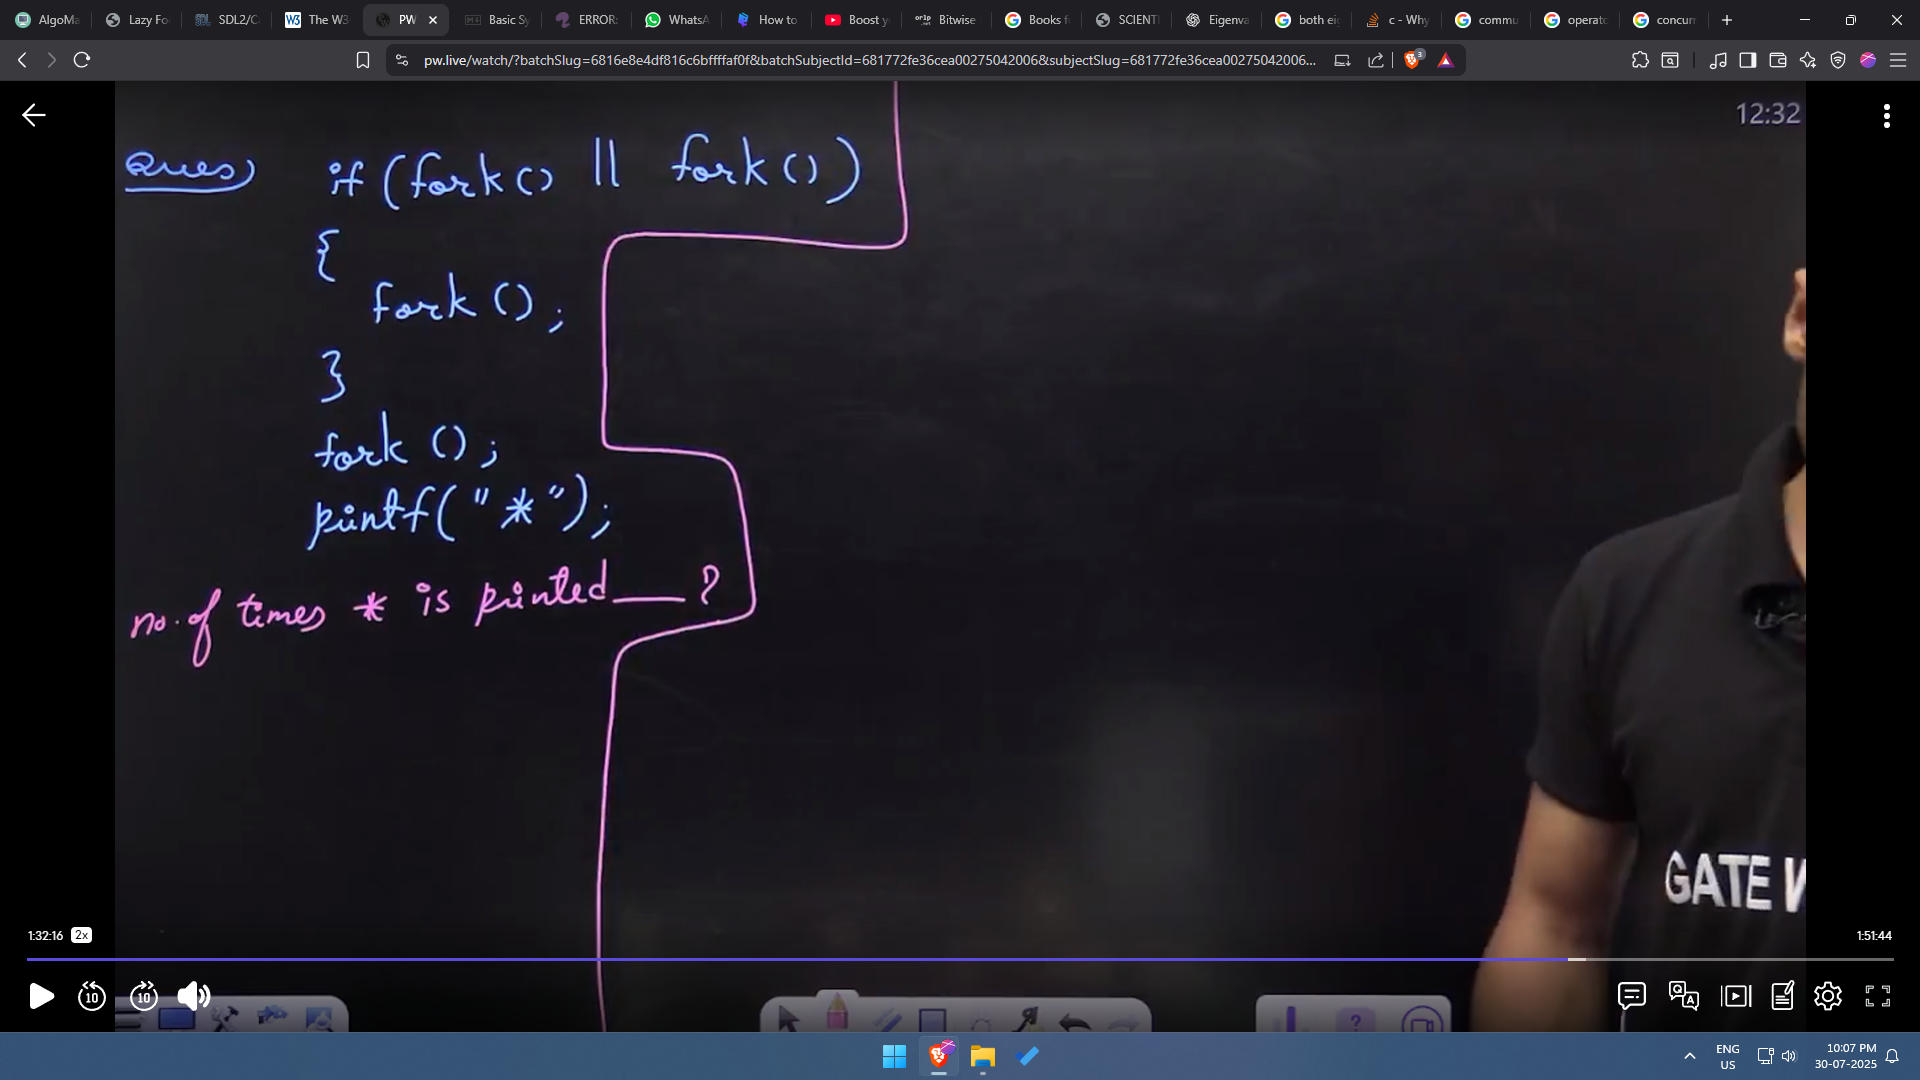 AlgoMa
Lazy Fo
SDL2/C
The W3
PW
Basic Sy
ERROR:
WhatsA
How to
Boost y
Bitwise
Books f
SCIENTI
Eigenva
both eig
c - Why
commu
operato
concurr
pw.live/watch/?batchSlug=6816e8e4df816c6bffffaf0f&batchSubjectId=681772fe36cea00275042006&subjectSlug=681772fe36cea00275042006...
12:32
Ques) if (fork() || fork())
{
fork();
}
fork();
printf("*");
no. of times * is printed ____ ?
GATE W
1:32:16 2x
1:51:44
10
10
ENG
US
10:07 PM
30-07-2025